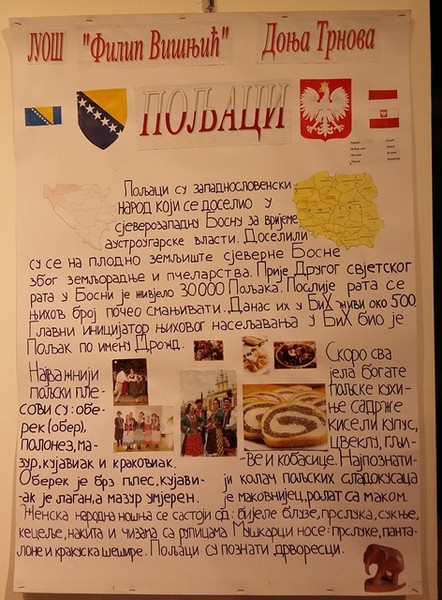 ЈУОШ "Филип Вишњић" Доња Трнова
ПОЉАЦИ
Пољаци су западнословенски
народ који се доселио у
сјеверозападну Босну за вријеме
аустроугарске власти. Доселили
су се на плодно земљиште сјеверне Босне
због земљорадње и пчеларства. Прије Другог свјетског
рата у Босни је живјело 30000 Пољака. Послије рата се
њихов број почео смањивати. Данас их у БиХ живи око 500.
Главни иницијатор њиховог насељавања у БиХ био је
Пољак по имену Дрозд.
Најважнији
пољски пле-
сови су: обе-
рек (обер),
полонез, ма-
зур, кујавиак и краковиак.
Оберек је брз плес, кујави-
ак је лаган, а мазур умјерен.
Скоро сва
јела богате
пољске кухи-
ње садрже
кисели купус,
цвеклу, гљи-
ве и кобасице. Најпознати-
ји колач пољских сладокусаца
је маковњијец, ролат са маком.
Женска народна ношња се састоји од: бијеле блузе, прслука, сукње,
кецеље, накита и чизама са рупицама. Мушкарци носе: прслуке, панта-
лоне и кракуска шешире. Пољаци су познати дрворесци.